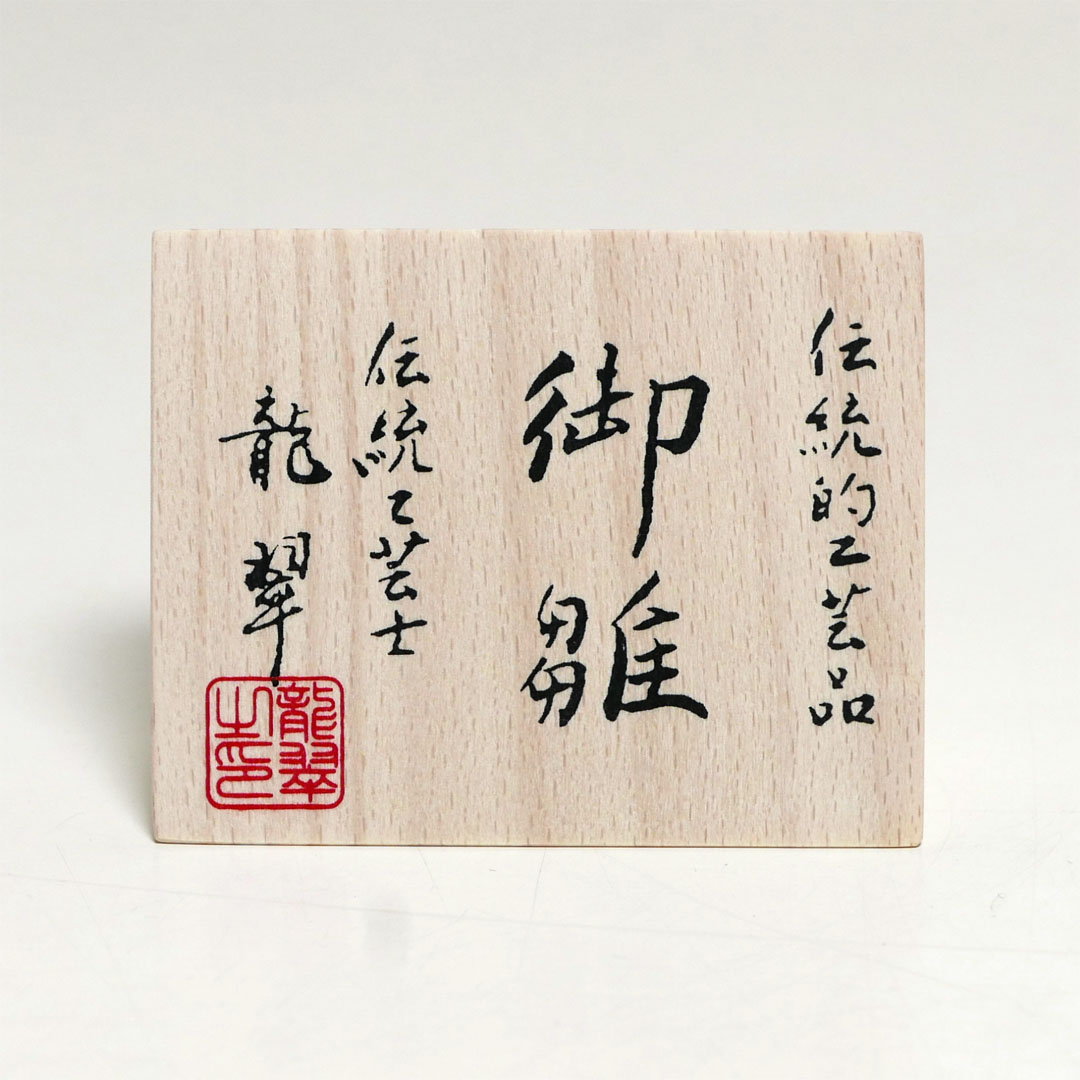 伝統的工芸品
御雛
伝統工芸士
龍翠
龍翠
之印